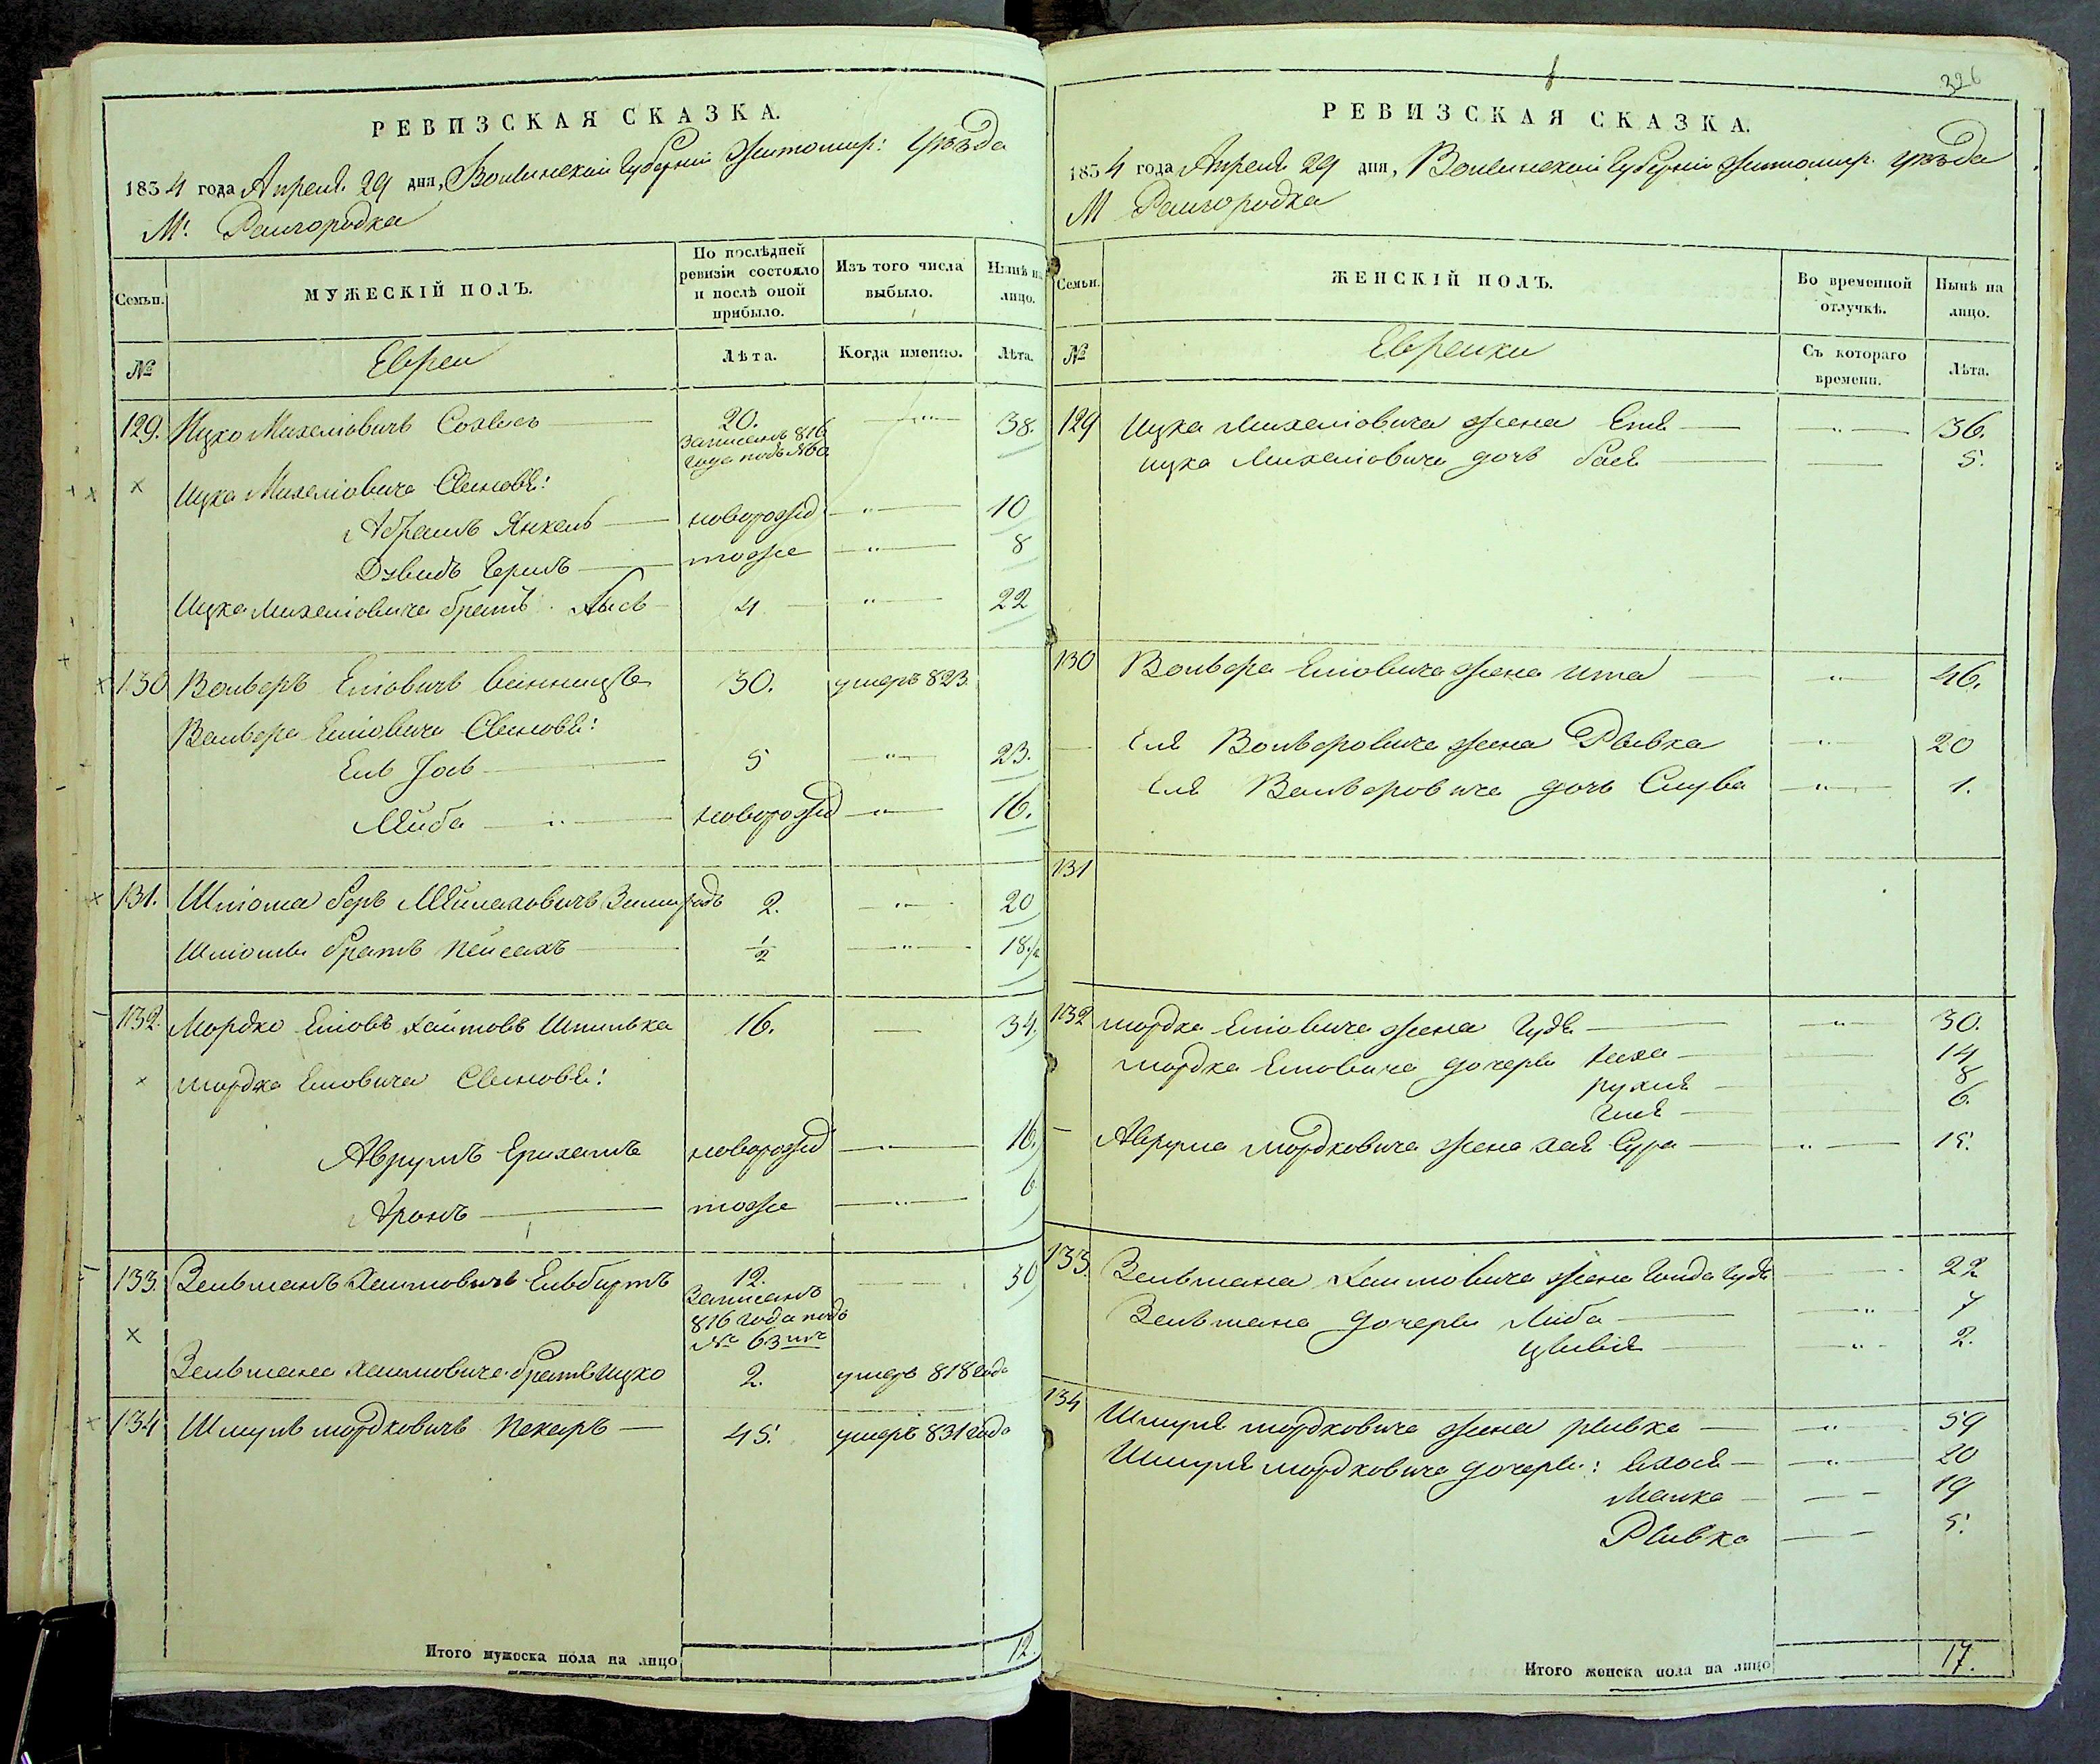 РЕВИЗСКАЯ СКАЗКА.
1834 года Апреля 29 дня, Волынской Губерніи Житомир: Уѣзда
М. Раигородка
Семьи.
МУЖЕСКІЙ ПОЛЪ.
По послѣдней ревизіи состояло и послѣ оной прибыло.
Изъ того числа выбыло.
Нынѣ на лицо.
№
Евреи
Лѣта.
Когда именно.
Лѣта.
129. Ицко Михелiовичъ 20. 38.
записанъ 816
года подъ №60
Ицка Михелiовича Сыновья:
Абрамъ Янкель новорожд 10
Дувидъ Гершъ тоже 8
Ицка Михелiовича братъ 4 22
130 Вольфъ Елiовичъ 30. умеръ 823.
Вольфа Елiовича Сыновья:
Ель 5 23.
Лейба новорожд 16.
131. Шлiома Беръ 2. 20
Шлiомы братъ Пейсахъ 1/2 18 1/2
132. Мордко Елiовъ Хаимовъ Шпилька 16. 34.
Мордка Елiовича Сыновья:
Аврумъ новорожд 16.
Аронъ тоже 6
133. Зельманъ Хаимовичъ 12. 30
Записанъ
816 года подъ
№ 63мъ
Зельмана Хаимовича братъ Ицко 2. умеръ 818 года
134 Шмуль Мордковичъ Пекаръ 45. умеръ 831 года
Итого мужеска пола на лицо 12.
326
РЕВИЗСКАЯ СКАЗКА.
1834 года Апреля 29 дня, Волынской Губерніи Житомир. Уѣзда
М Раигородка
Семьи.
ЖЕНСКІЙ ПОЛЪ.
Во временной отлучкѣ.
Нынѣ на лицо.
№
Еврейки
Съ котораго времени.
Лѣта.
129 Ицка Михелiовича жена 36.
Ицка Михелiовича дочь 5.
130 Вольфа Елiовича жена Ита 46.
Еля Вольфовича жена Рывка 20
Еля Вольфовича дочь 1.
131
132 Мордка Елiовича жена 30.
Мордка Елiовича дочери Неха 14
Рухля 8
6.
Аврума Мордковича жена Хая Сура 15.
133. Зельмана Хаимовича жена 22
Зельмана дочери Либа 7
Цывія 2.
134 Шмуля Мордковича жена Рывка 59
Шмуля Мордковича дочери: 20
Малка 19
Рывка 5.
Итого женска пола на лицо 17.